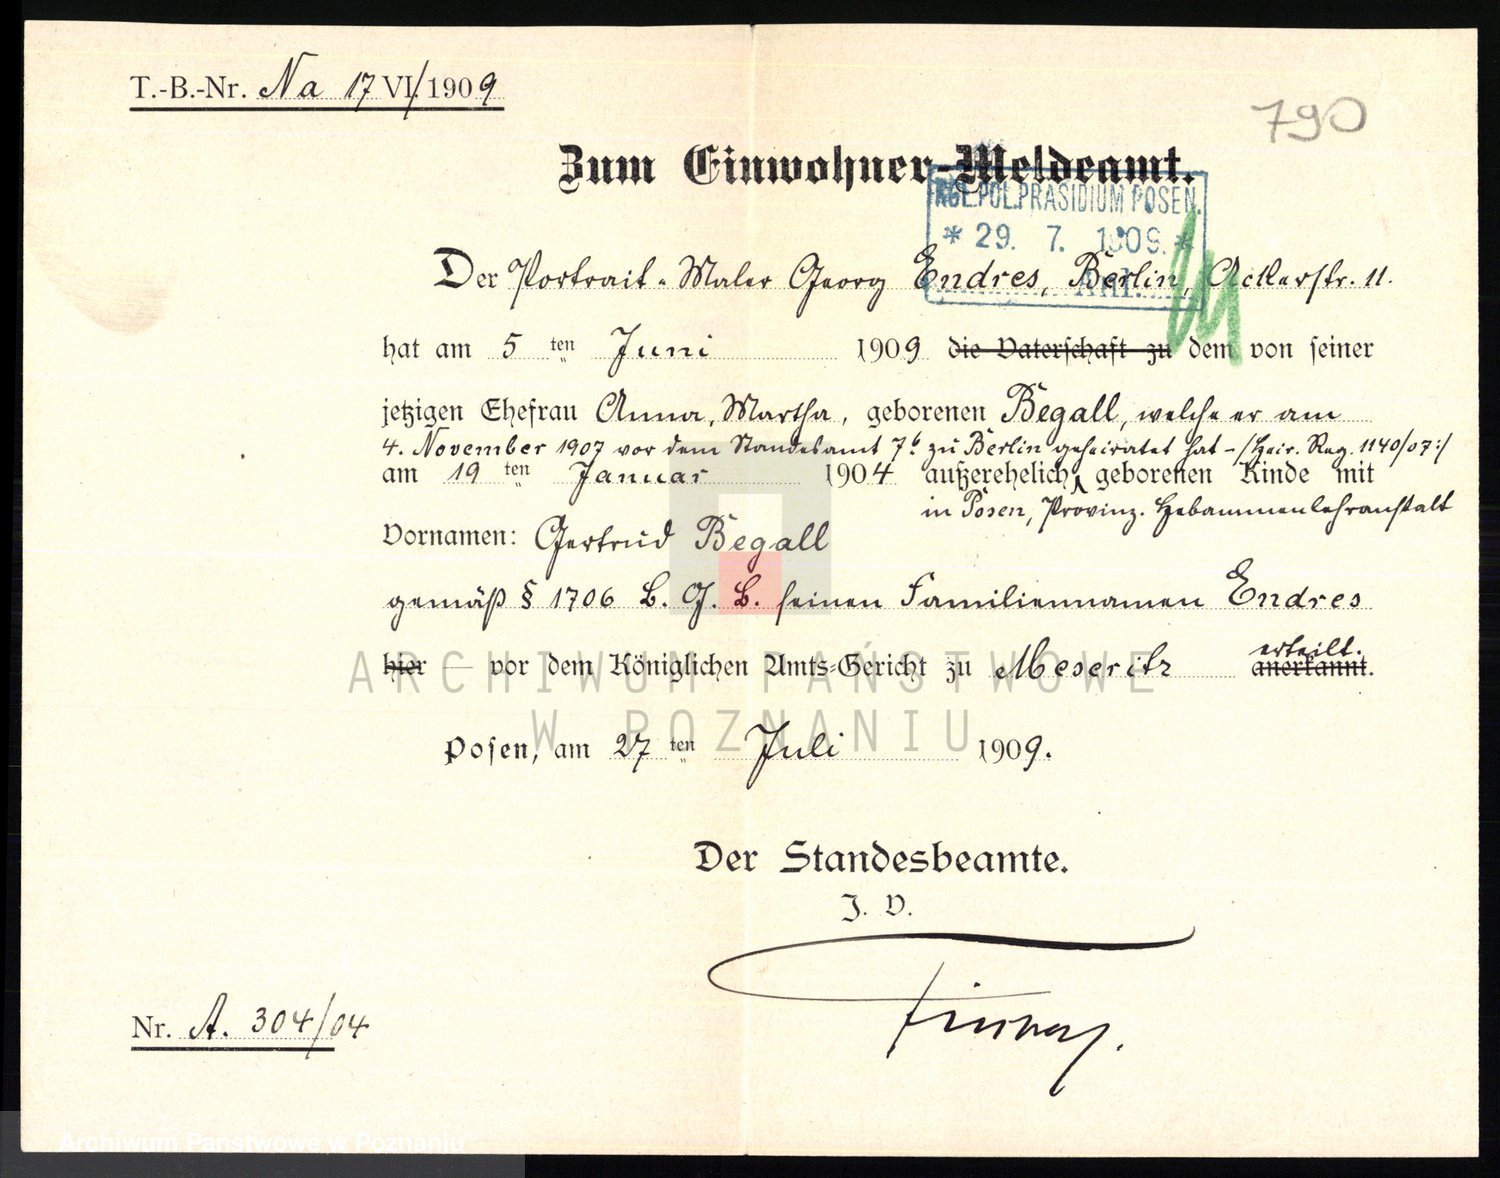 T.-B.-Nr. Na 17 VI/1909
790
Zum Einwohner-Meldeamt.
KGL.POL.PRÄSIDIUM POSEN.
* 29. 7. 1909. *
Anl.
Der Portrait-Maler Georg Endres, Berlin, Ackerstr. 11.
hat am 5 ten Juni 1909 die Vaterschaft zu dem von seiner
jetzigen Ehefrau Anna, Martha, geborenen Begall, welche er am
4. November 1907 vor dem Standesamt 7b zu Berlin geheiratet hat - /Heir. Reg. 1140/07:/
am 19 ten Januar 1904 außerehelich geborenen Kinde mit
in Posen, Provinz. Hebammenlehranstalt
Vornamen: Gertrud Begall
gemäß § 1706 B. G. B. seinen Familiennamen Endres
erteilt.
hier — vor dem Königlichen Amts-Gericht zu Meseritz anerkannt.
ARCHIWUM PAŃSTWOWE
W POZNANIU
Posen, am 27 ten Juli 1909.
Der Standesbeamte.
J. V.
Nr. A. 304/04
Archiwum Państwowe w Poznaniu